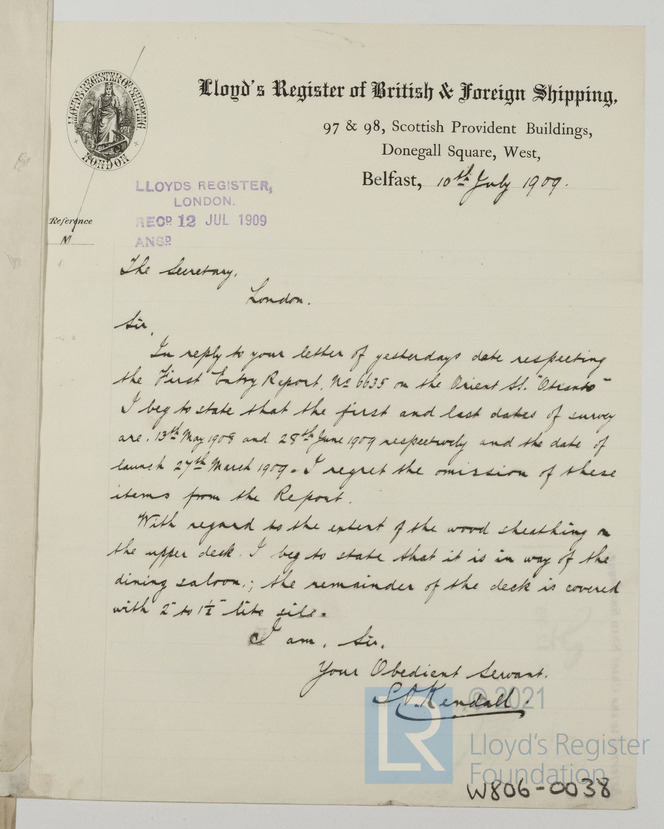 LLOYD'S REGISTER OF SHIPPING
LONDON
Lloyd's Register of British & Foreign Shipping,
97 & 98, Scottish Provident Buildings,
Donegall Square, West,
Belfast, 10th July 1909.
LLOYDS REGISTER,
LONDON.
RECD 12 JUL 1909
ANSD
Reference
The Secretary,
London.
Sir,
In reply to your letter of yesterdays date respecting
the First Entry Report, No 6635 on the Orient SS. "Otranto"
I beg to state that the first and last dates of survey
are. 13th May 1908 and 28th June 1909 respectively and the date of
launch 27th March 1909. I regret the omission of these
items from the Report.
With regard to the extent of the wood sheathing on
the upper deck. I beg to state that it is in way of the
dining saloon.; the remainder of the deck is covered
with 2" to 1½"
I am, Sir,
Your Obedient Servant.
Kendall.
© 2021
LR
Lloyd's Register
Foundation
W806-0038